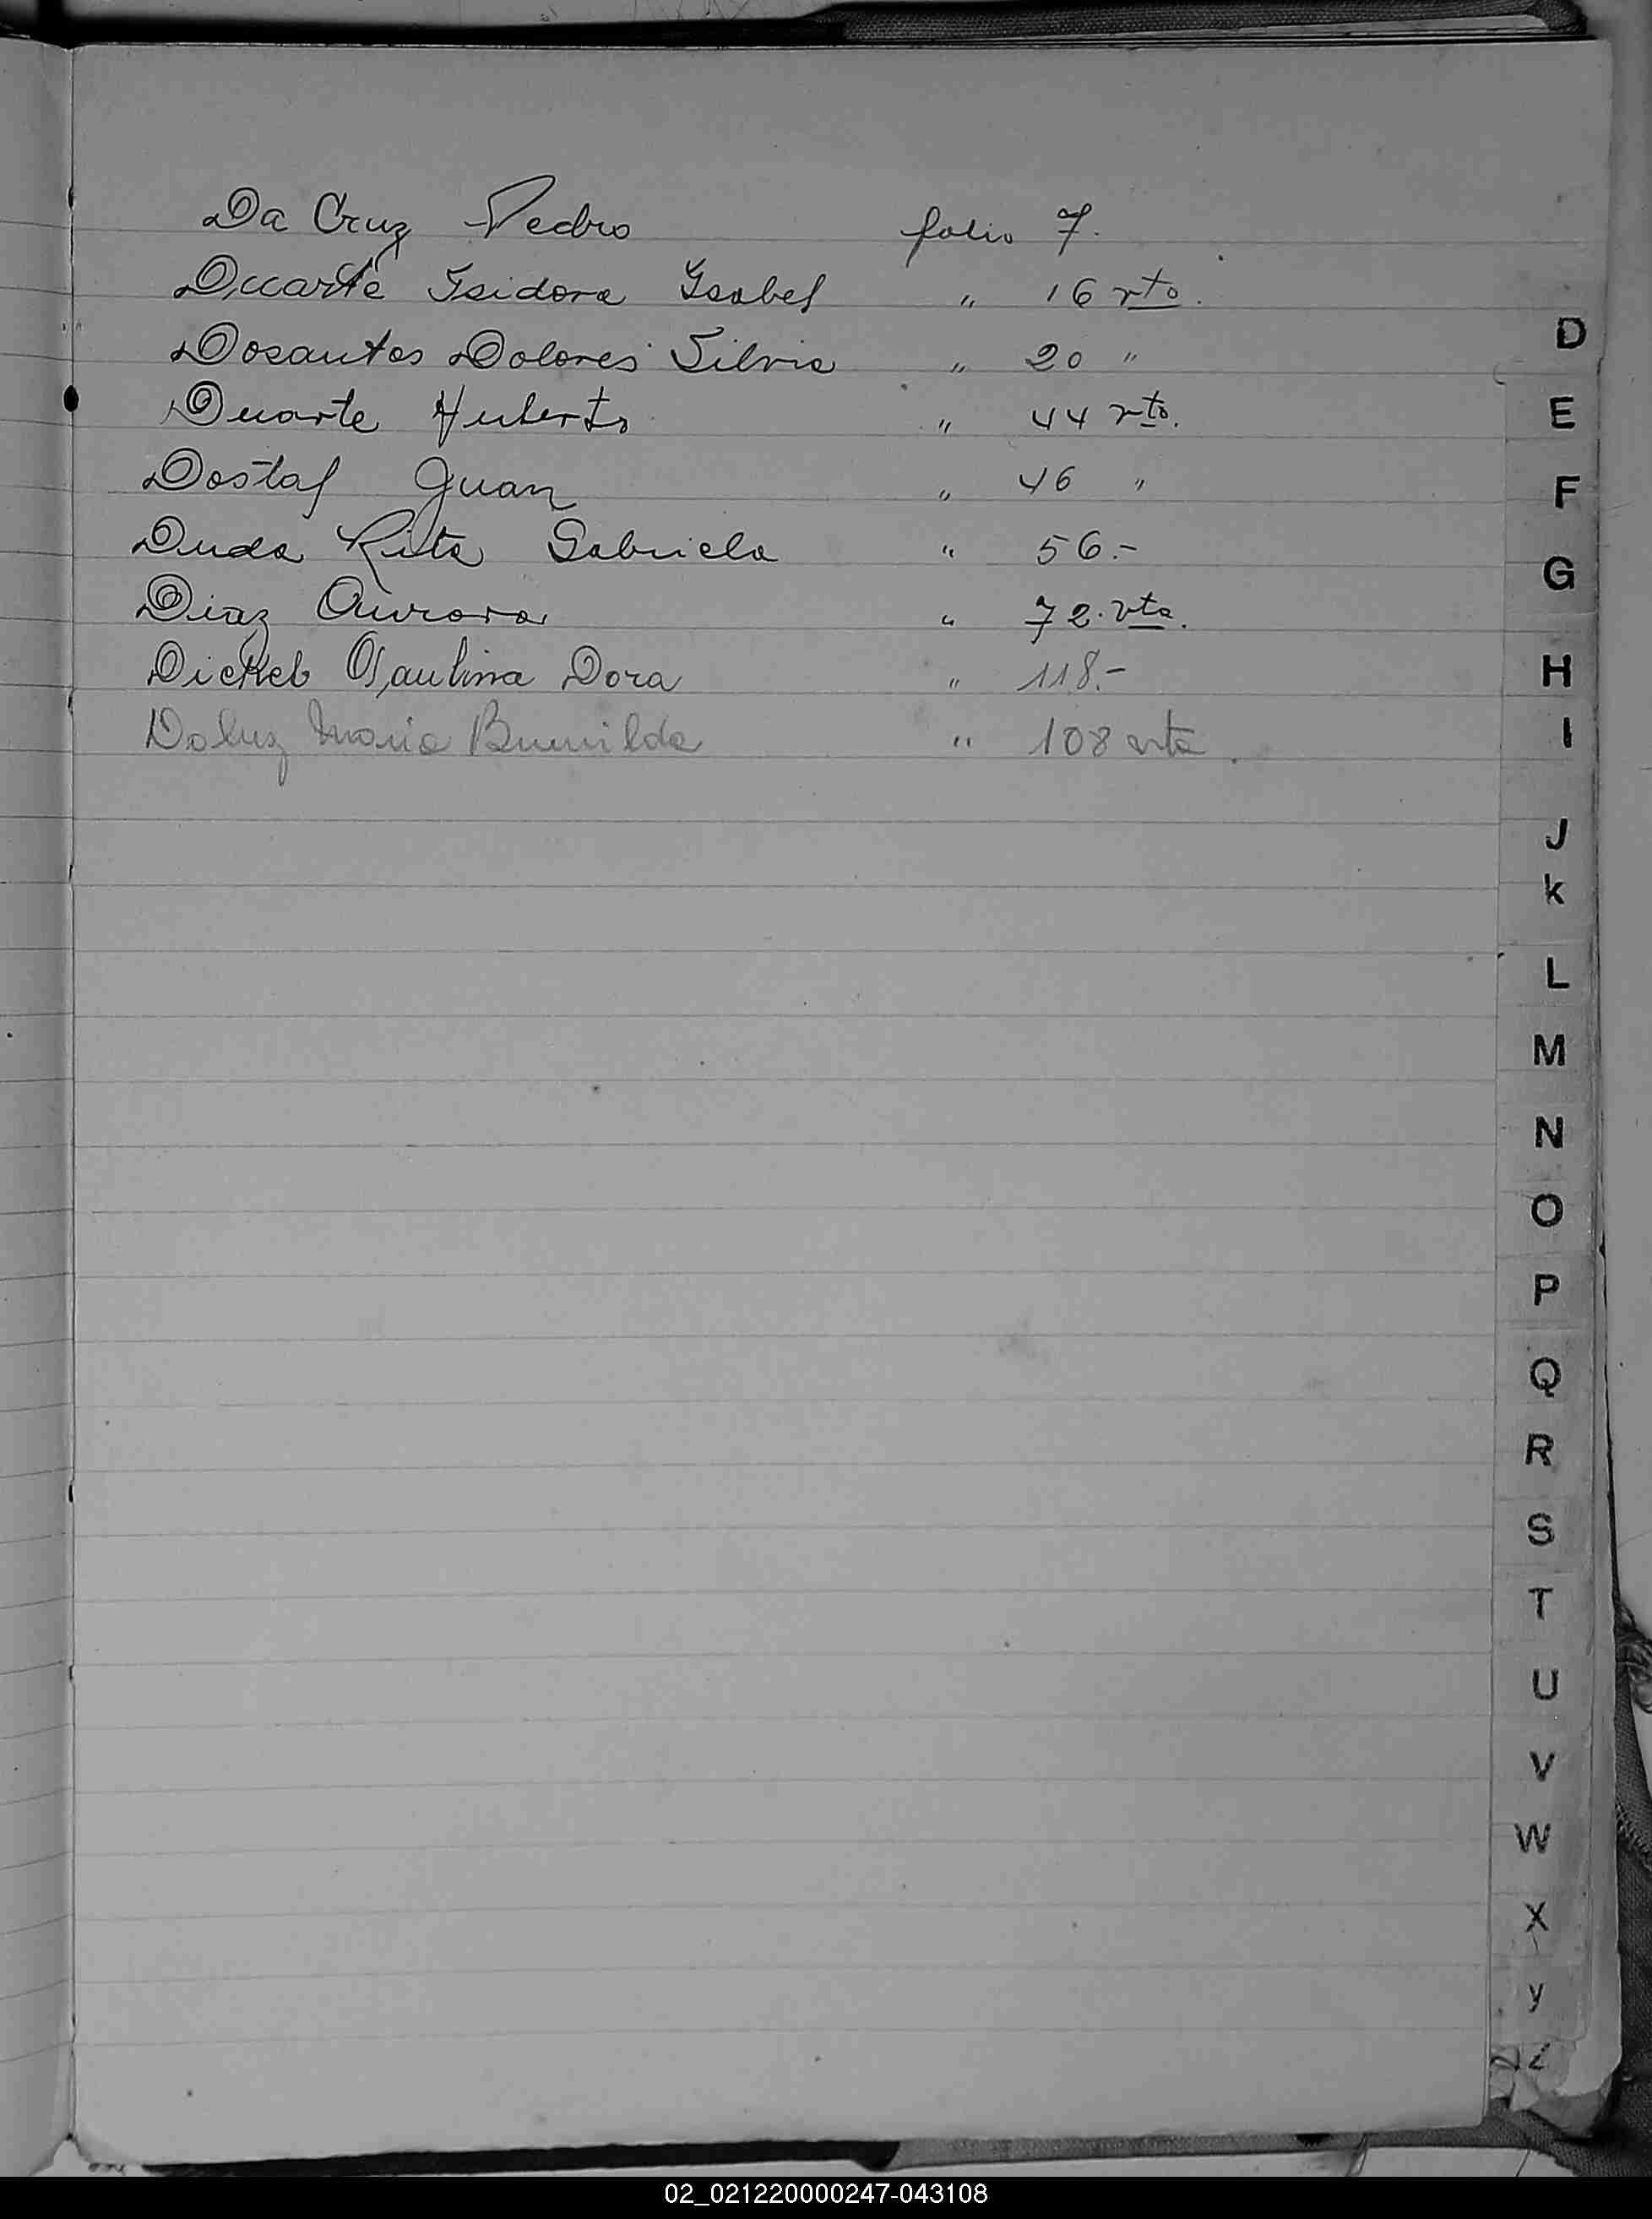 Da Cruz Pedro folio 7.
Duarte Isidora Isabel " 16 vto.
Dosantos Dolores Silvia " 20 "
Duarte Huberto " 44 vto.
Dostal Juan " 46 "
Duda Rita Gabriela " 56.-
Diaz Aurora " 72. vta.
Dickel Paulina Dora " 118.-
Daluz Maria Brunilda " 108 vta.
D
E
F
G
H
I
J
k
L
M
N
O
P
Q
R
S
T
U
V
W
X
y
z
02_021220000247-043108